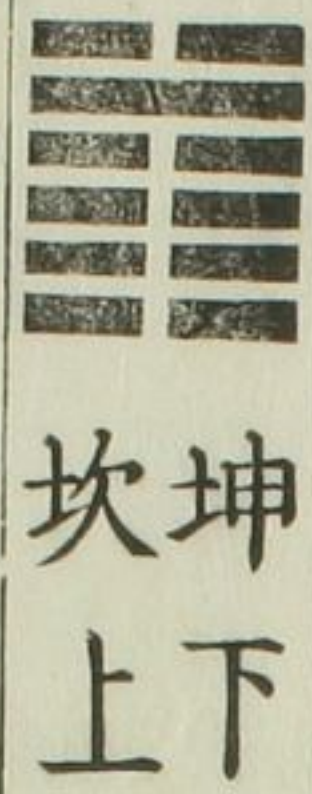 坤下
坎上